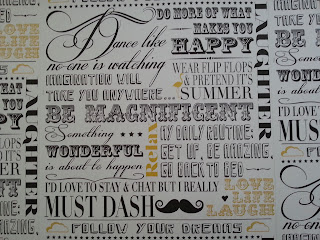 DO MORE OF WHAT
MAKES YOU
HAPPY
Dance like
no-one is watching
IMAGINATION WILL
TAKE YOU ANYWHERE...
WEAR FLIP FLOPS
& PRETEND IT'S
SUMMER
BE MAGNIFICENT
Something
WONDERFUL
is about to happen
Relax
MY DAILY ROUTINE:
GET UP, BE AMAZING,
GO BACK TO BED
I'D LOVE TO STAY & CHAT BUT I REALLY
MUST DASH
LOVE
LIFE
LAUGH
FOLLOW YOUR DREAMS
LAUGHTER
LOVE
LIFE
LAUGH
LAUGHTER
BE MA
Something
WONDER
is about to
I'D LOVE TO
MUST